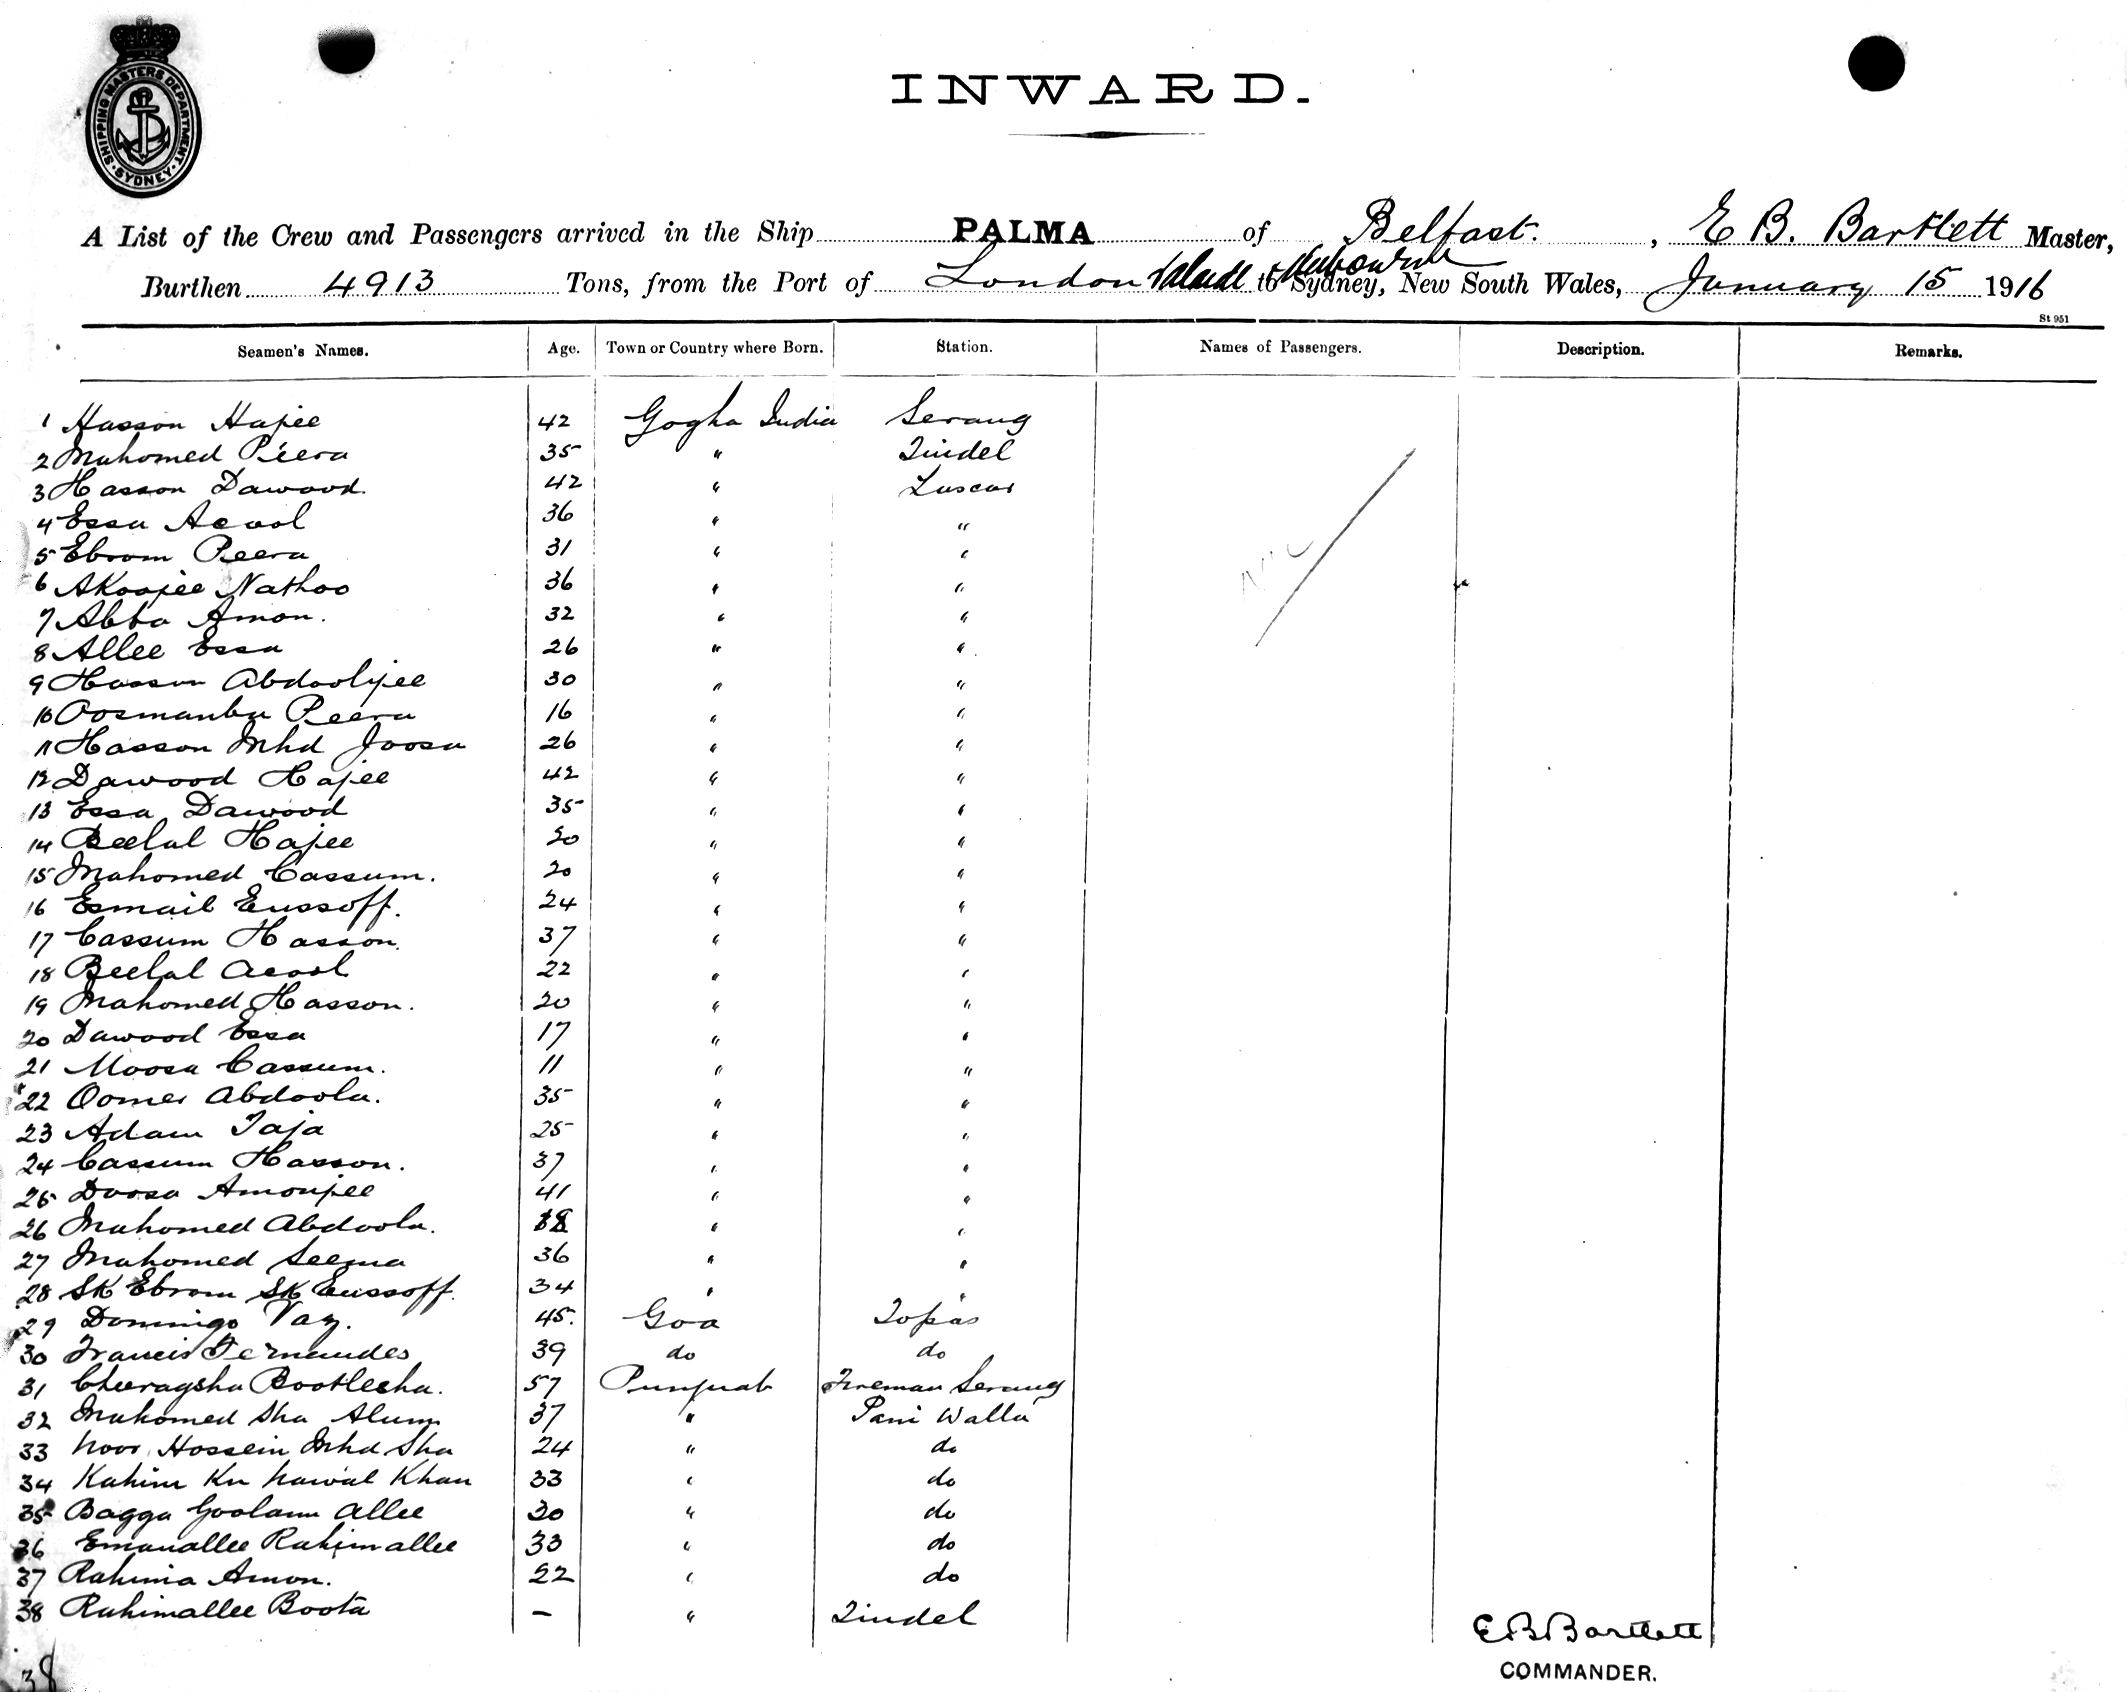 SHIPPING MASTERS DEPARTMENT
SYDNEY
INWARD.
A List of the Crew and Passengers arrived in the Ship PALMA of Belfast. , E B. Bartlett Master,
Burthen 4913 Tons, from the Port of London Adelaide & Melbourne to Sydney, New South Wales, January 15 1916
St 951
Seamen's Names. Age. Town or Country where Born. Station. Names of Passengers. Description. Remarks.
1 Hasson Hajee 42 Gogha India Serang
2 Mahomed Peera 35 " Tindel
3 Hasson Dawood. 42 " Lascar
4 Essa Acool 36 " "
5 Ebrom Peera 31 " "
6 Akoojee Nathoo 36 " "
7 Abba Amon. 32 " "
8 Allee Essa 26 " "
9 Hasson Abdoolijee 30 " "
10 Oosmanba Peera 16 " "
11 Hasson Mhd Joosa 26 " "
12 Dawood Hajee 42 " "
13 Essa Dawood 35 " "
14 Beelal Hajee 20 " "
15 Mahomed Cassum. 20 " "
16 Esmail Eussoff. 24 " "
17 Cassum Hasson. 37 " "
18 Beelal Acool 22 " "
19 Mahomed Hasson. 20 " "
20 Dawood Essa 17 " "
21 Moosa Cassum. 11 " "
22 Oomer Abdoola. 35 " "
23 Adam Taja 25 " "
24 Cassum Hasson. 37 " "
25 Doosa Amonjee 41 " "
26 Mahomed Abdoola. 18 " "
27 Mahomed Seema 36 " "
28 SK Ebrom SK Eussoff. 34 " "
29 Domingo Vaz. 45. Goa Topas
30 Francis Fernandes 39 do do
31 Cheragsha Bootlesha. 57 Punjuab Fireman Serang
32 Mahomed Sha Alum 37 " Pani Walla
33 Noor Hossein Mhd Sha 24 " do
34 Kahim Kn Nawal Khan 33 " do
35 Bagga Goolam Allee 30 " do
36 Emanallee Rahimallee 33 " do
37 Rahima Amon. 22 " do
38 Rahimallee Boota - " Tindel
E B Bartlett
COMMANDER.
38